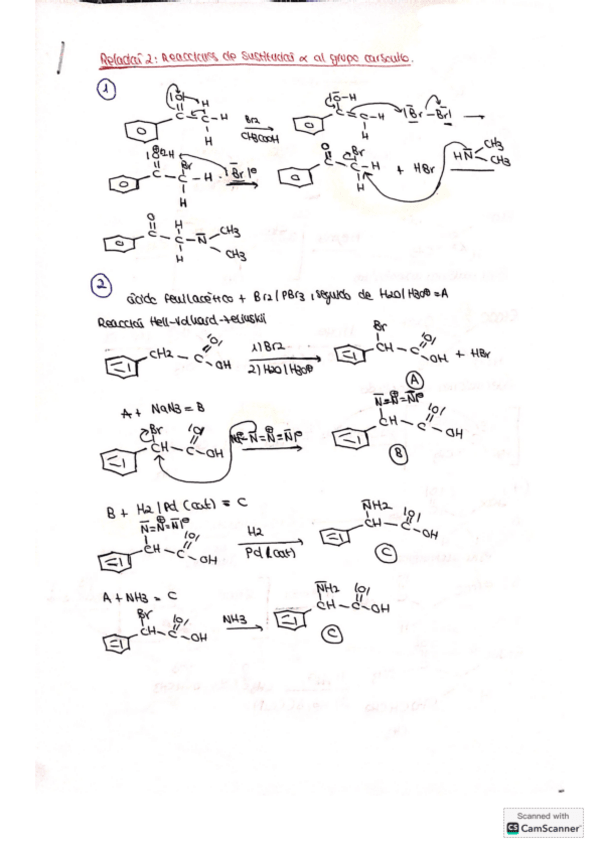 Relación 2: Reacciones de sustitución α al grupo carbonilo.
1
Br2
CH3COOH
+ HBr
CH3
CH3
CH3
CH3
2
ácido fenilacético + Br2/PBr3, seguido de H2O/H3O⊕ = A
Reacción Hell-Volhard-Zelinskii
CH2 - C OH
1) Br2
2) H2O/H3O⊕
Br
CH - C OH
+ HBr
A
A + NaN3 = B
Br
CH - C - OH
N=N=N
CH - C - OH
B
B + H2/Pd (cat) = C
N=N=N
CH - C OH
H2
Pd (cat)
NH2
CH - C - OH
C
A + NH3 = C
Br
CH - C - OH
NH3
NH2
CH - C - OH
C
Scanned with
CS CamScanner